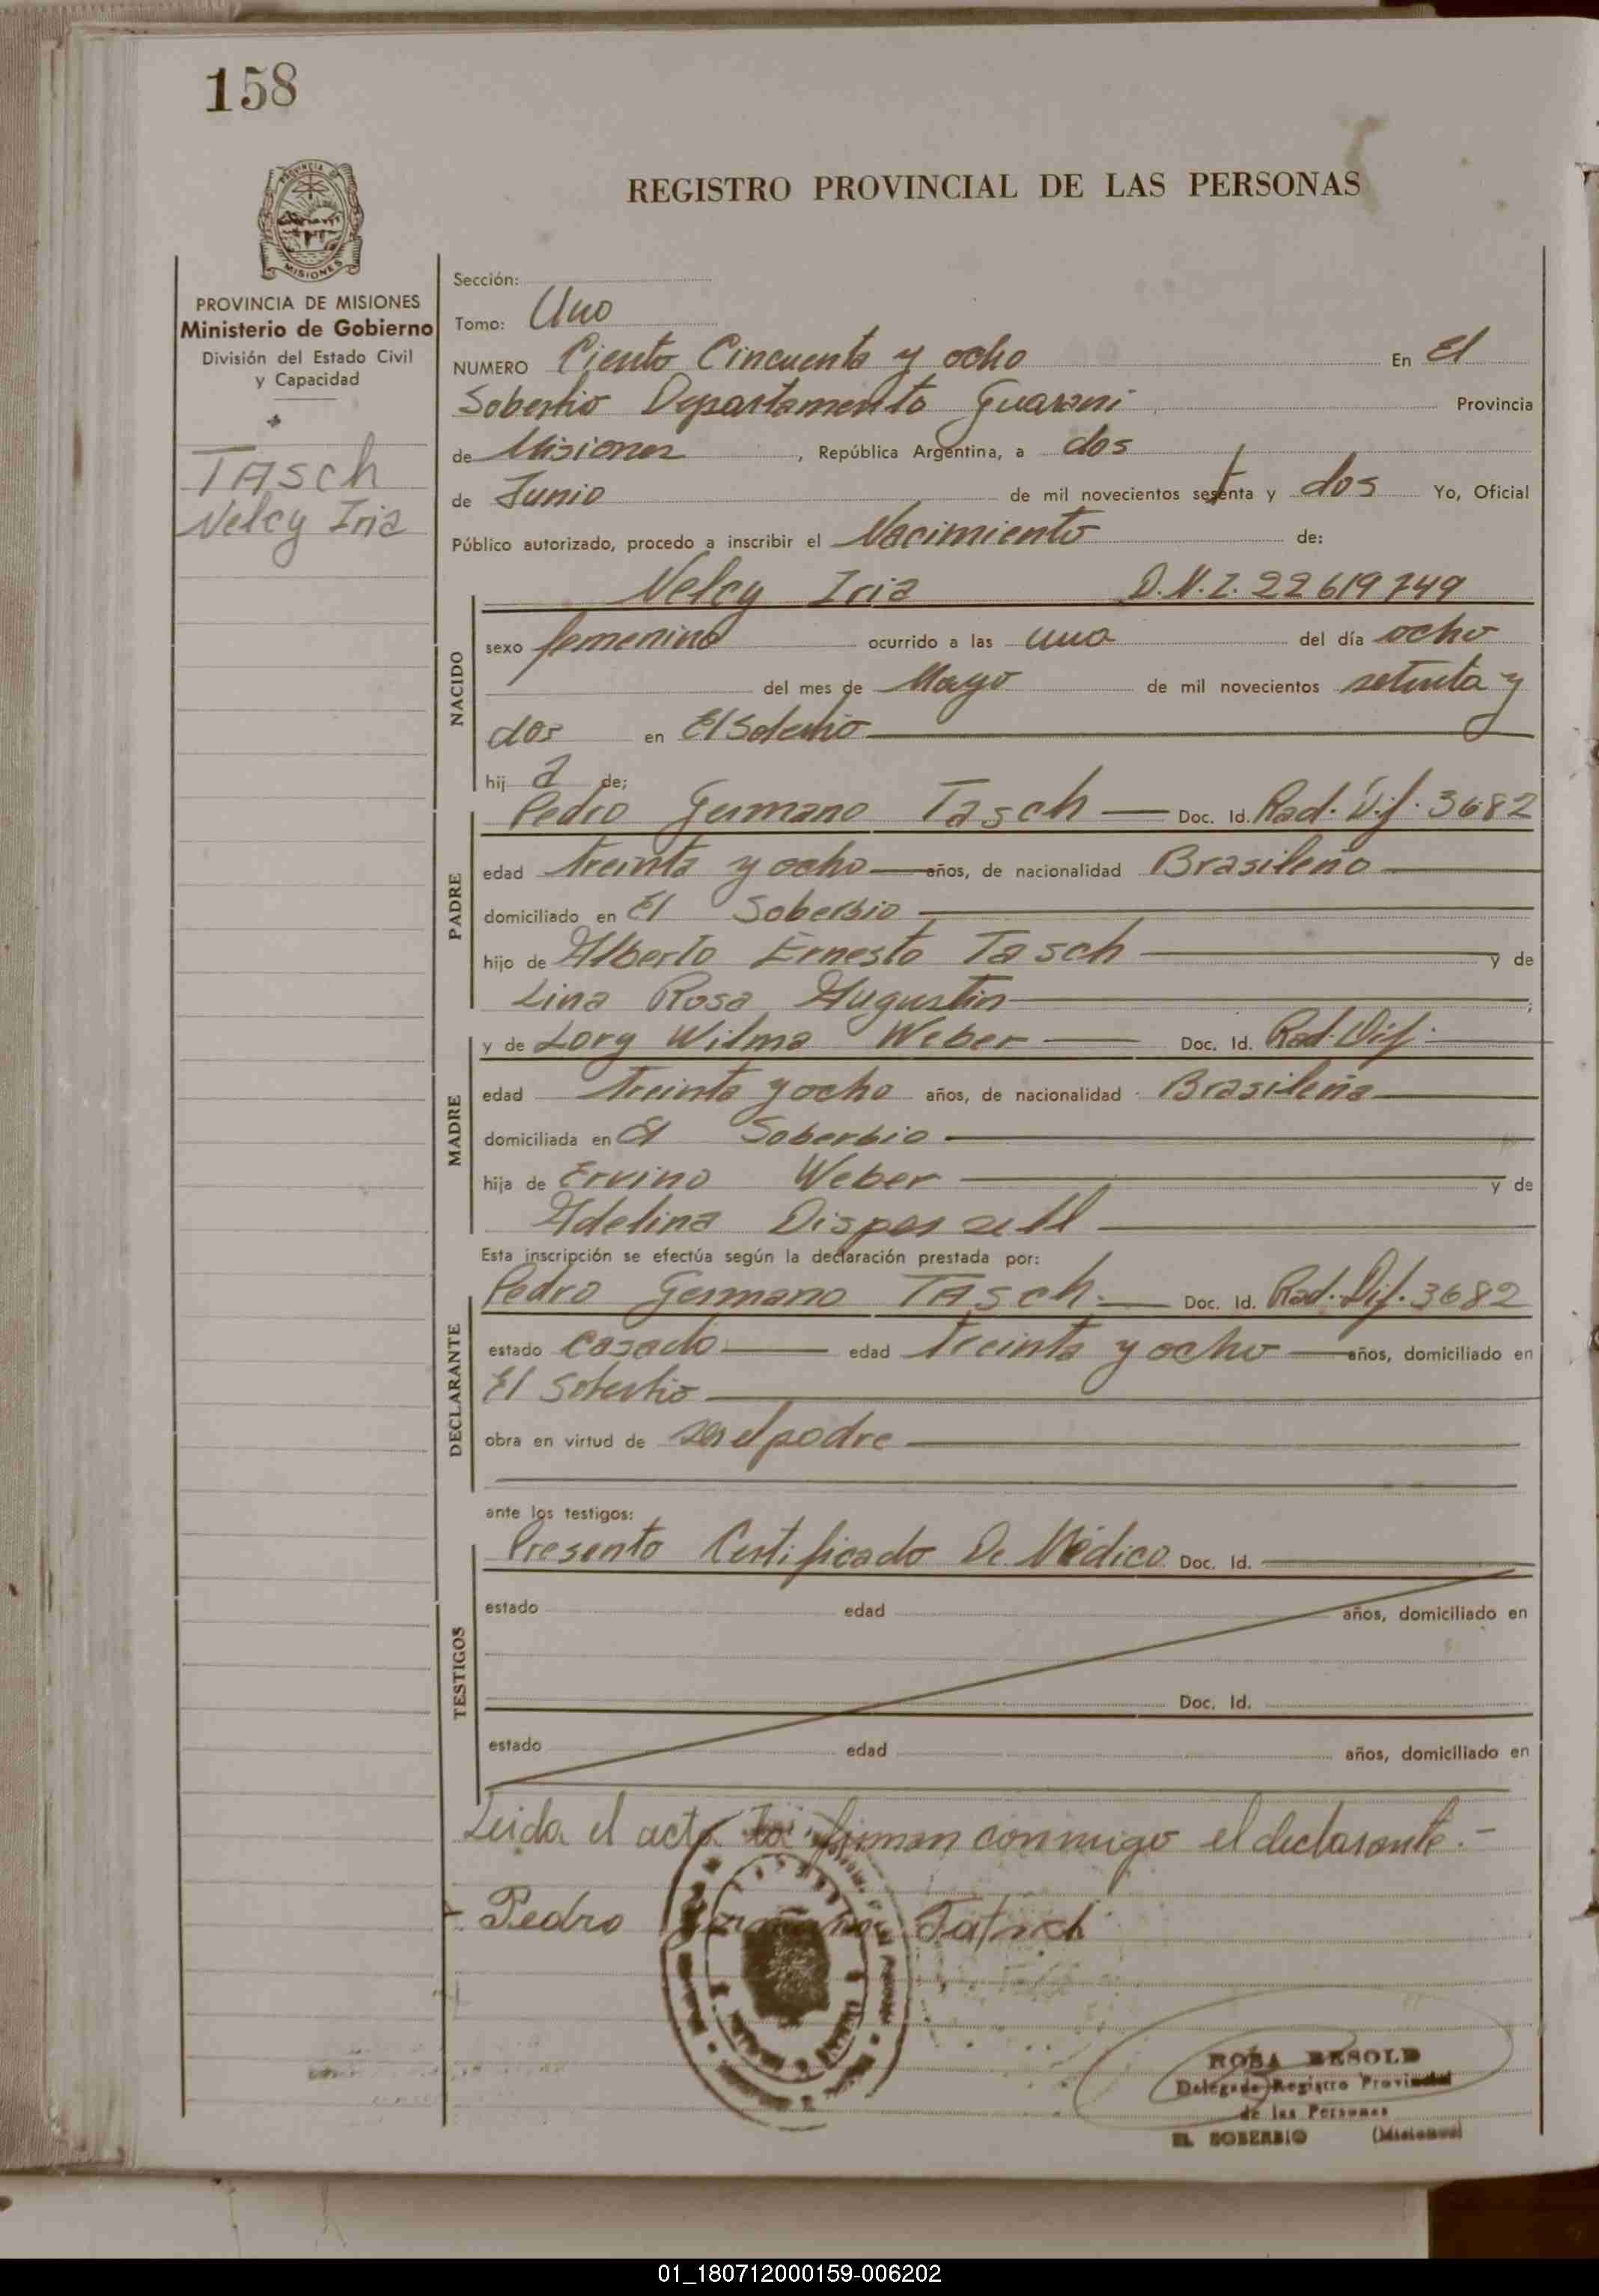 158
PROVINCIA DE
MISIONES
REGISTRO PROVINCIAL DE LAS PERSONAS
PROVINCIA DE MISIONES
Ministerio de Gobierno
División del Estado Civil
y Capacidad
TASCH
Nelcy Iria
Sección:
Tomo: Uno
NUMERO Ciento Cincuenta y ocho En El
Soberbio Departamento Guarani Provincia
de Misiones, República Argentina, a dos
de Junio de mil novecientos setenta y dos Yo, Oficial
Público autorizado, procedo a inscribir el Nacimiento de:
Nelcy Iria D.N.I. 22619749
NACIDO
sexo femenino ocurrido a las una del día ocho
del mes de Mayo de mil novecientos setenta y
dos en El Soberbio
hij a de;
PADRE
Pedro Germano Tasch Doc. Id. Rad. Dif. 3682
edad treinta y ocho años, de nacionalidad Brasileño
domiciliado en El Soberbio
hijo de Alberto Ernesto Tasch y de
Lina Rosa Augustin ;
MADRE
y de Lory Wilma Weber Doc. Id. Rad. Dif.
edad treinta y ocho años, de nacionalidad Brasileña
domiciliada en El Soberbio
hija de Ervino Weber y de
Adelina
Esta inscripción se efectúa según la declaración prestada por:
DECLARANTE
Pedro Germano TASCH. Doc. Id. Rad. Dif. 3682
estado casado edad treinta y ocho años, domiciliado en
El Soberbio
obra en virtud de ser el padre
ante los testigos:
TESTIGOS
Presento Certificado De Médico Doc. Id.
estado edad años, domiciliado en
Doc. Id.
estado edad años, domiciliado en
Leida el acta la firman conmigo el declarante.-
Pedro Germano Tatsch
ROSA BESOLD
Delegada Registro Provincial
de las Personas
EL SOBERBIO (Misiones)
01_180712000159-006202